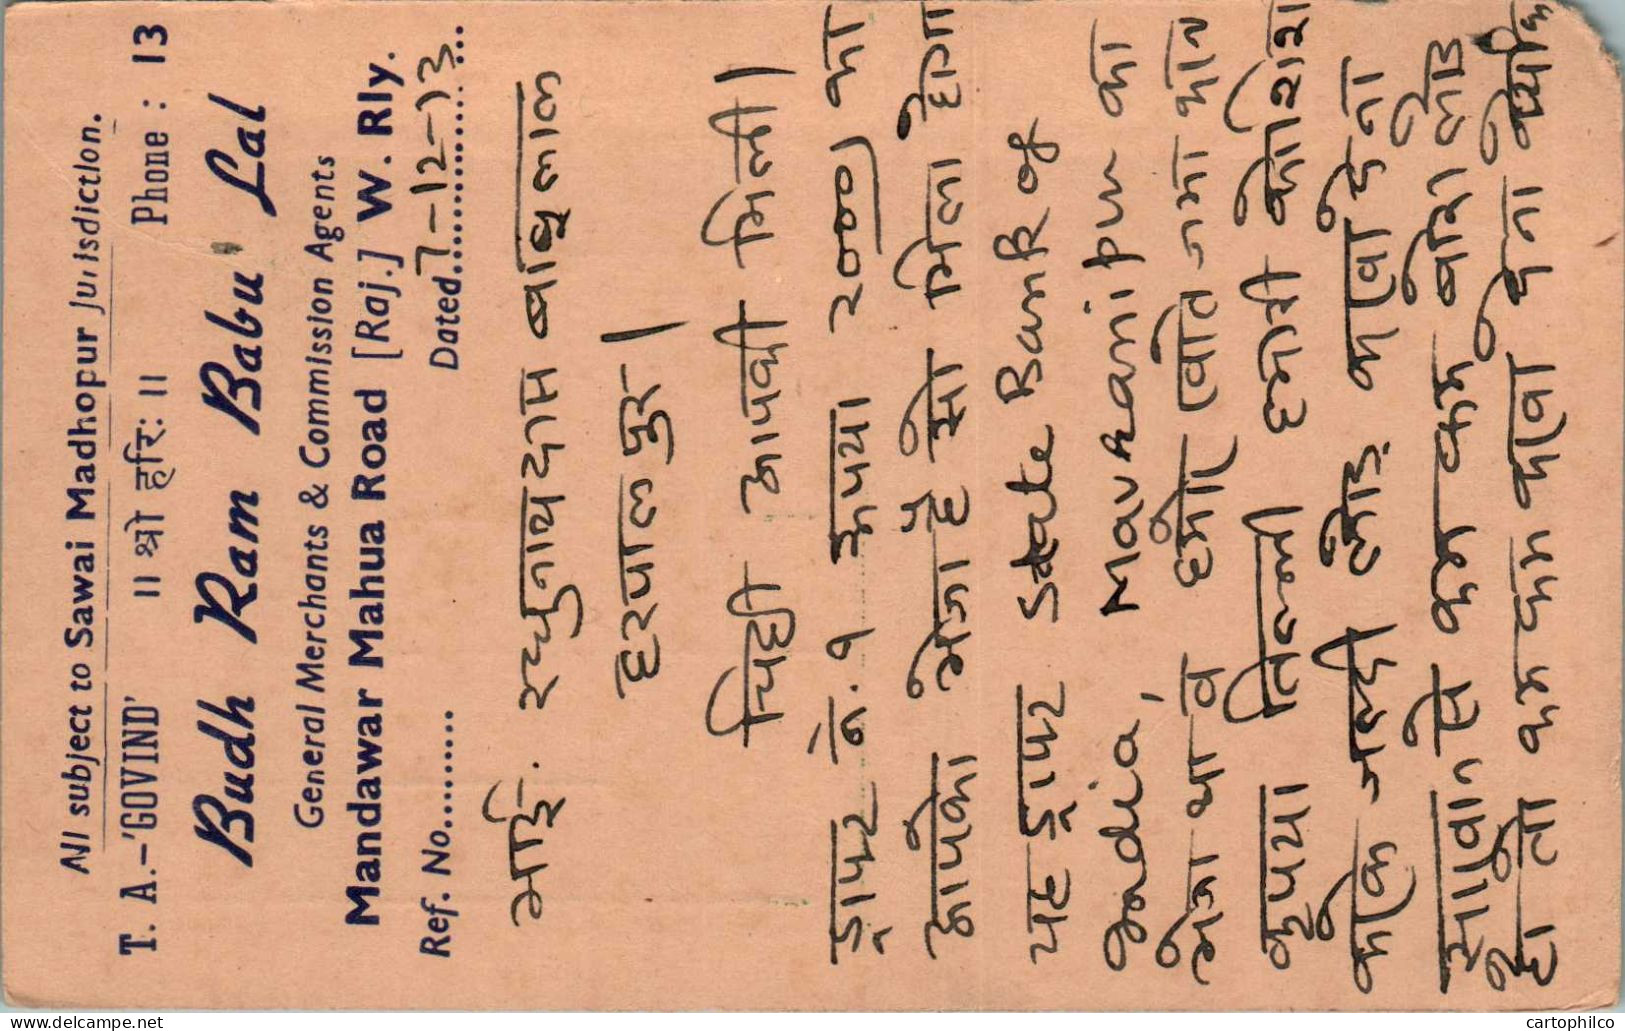 All subject to Sawai Madhopur Jurisdiction.
T. A.–'GOVIND' ॥ श्री हरिः ॥ Phone : 13
Budh Ram Babu Lal
General Merchants & Commission Agents
Mandawar Mahua Road [Raj.] W. Rly.
Ref. No......... Dated 7-12-73
भाई. रघुनाथदास बाबुलाल
हरपालपुर।
चिट्ठी आपकी मिली।
ड्राफ्ट नं. १ रूपया २०००) का
आपको भेजा है सो मिला होगा
यह ड्राफ्ट State Bank of
India, Mavranipur का
भेजा था व हमारे खाते जमा
कृपया हमारी कोशिश
करके जल्दी लोड करवा देना
सावधान से कम कम लोड
हो तो कम कम करवा देना
cartophilco